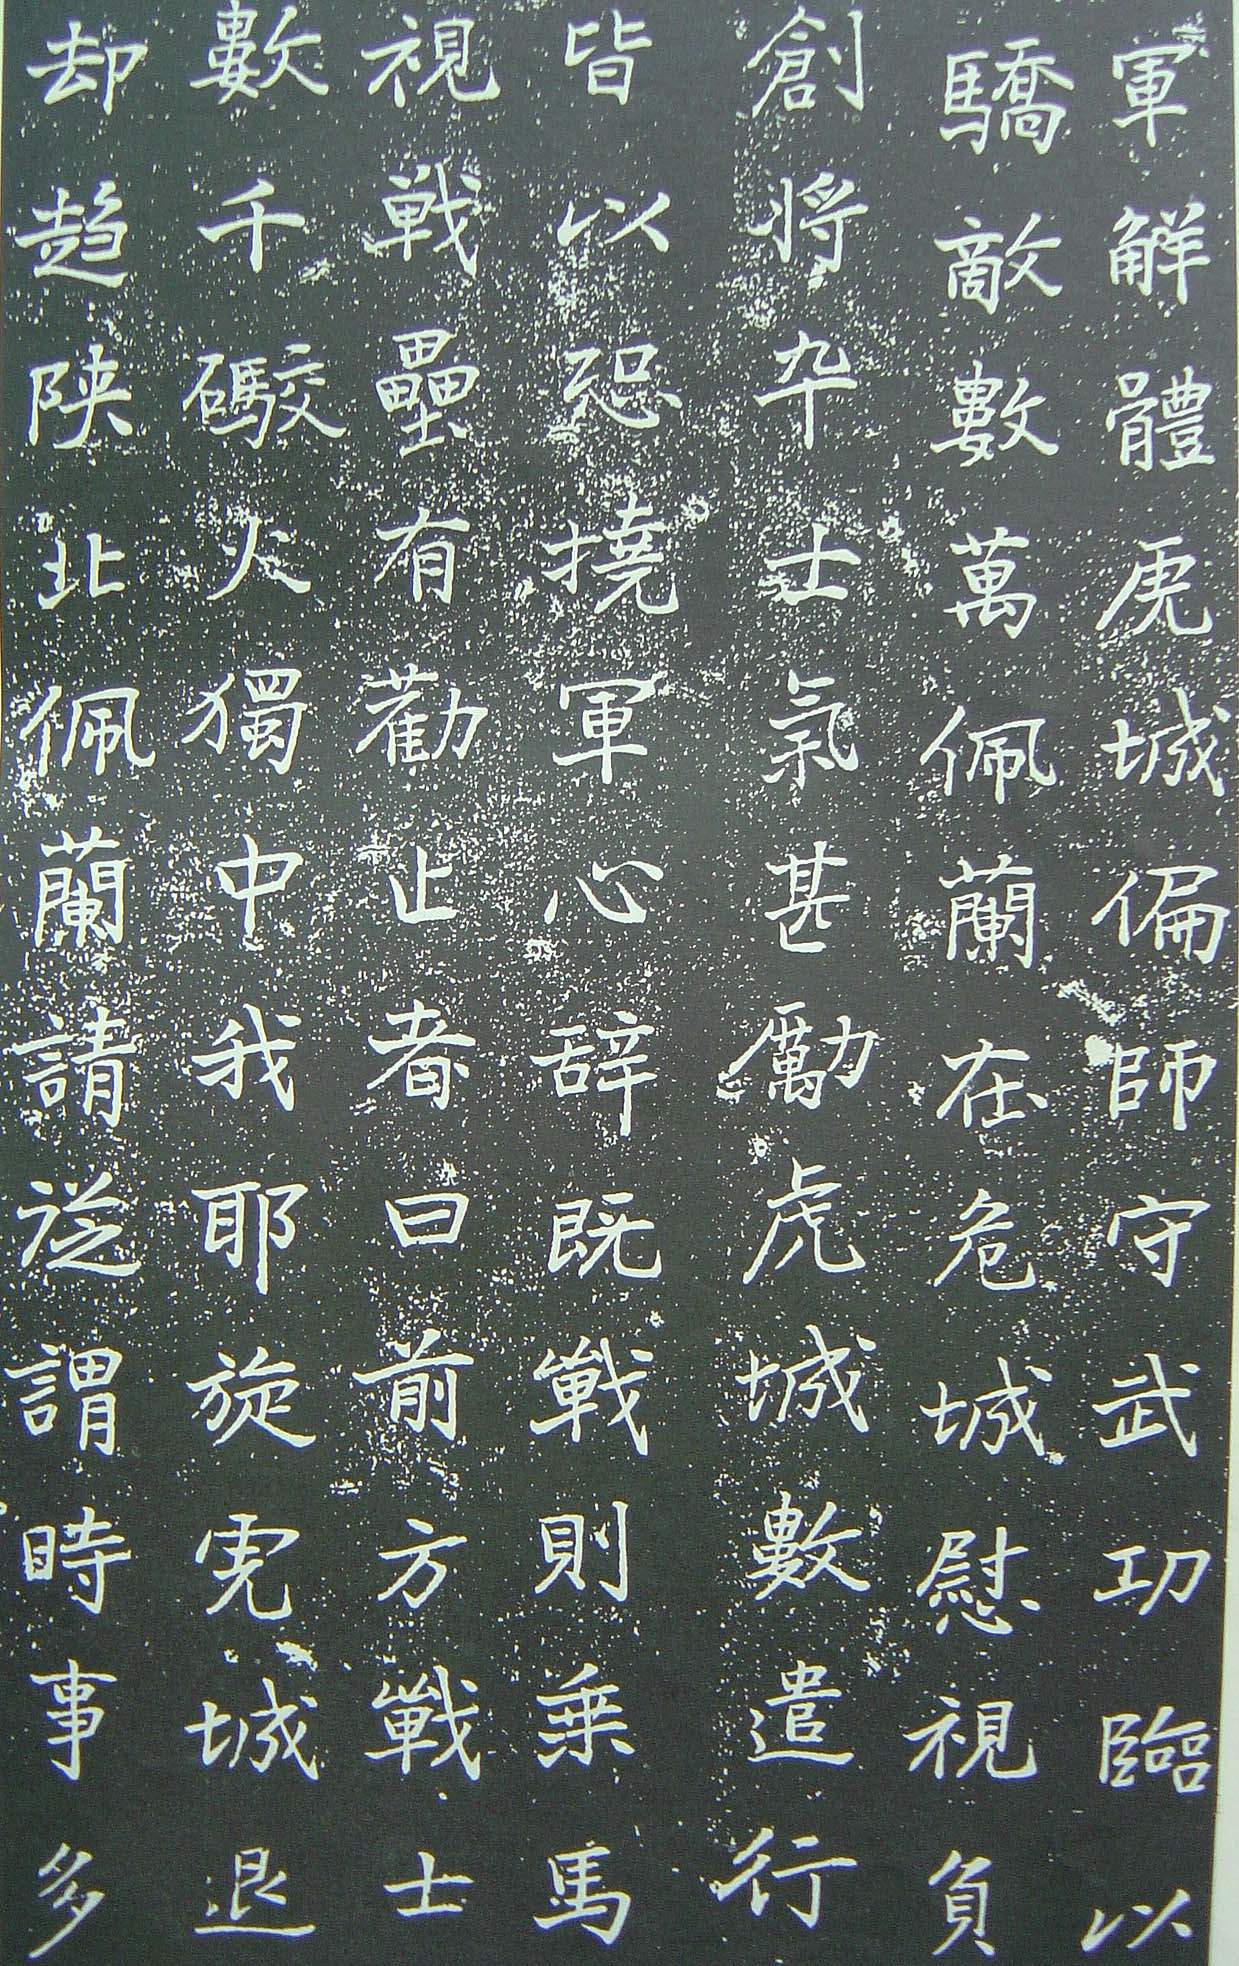 軍解體虎城偏師守武功臨以
驕敵數萬佩蘭在危城慰視負
創將卒士氣甚勵虎城數遣行
皆以恐撓軍心辞既戰則乗馬
視戰壘有勸止者曰前方戰士
數千礮火獨中我耶旋虎城退
却趋陝北佩蘭請從謂時事多